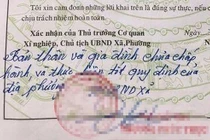 Tôi xin cam đoan những lời khai trên là đúng sự thực, nếu
chịu trách nhiệm hoàn toàn.
Xác nhận của Thủ trưởng Cơ quan
Xí nghiệp, Chủ tịch UBND Xã, Phường
Bản thân và gia đình chưa chấp
hành, và thực hiện tốt quy định của
địa phương